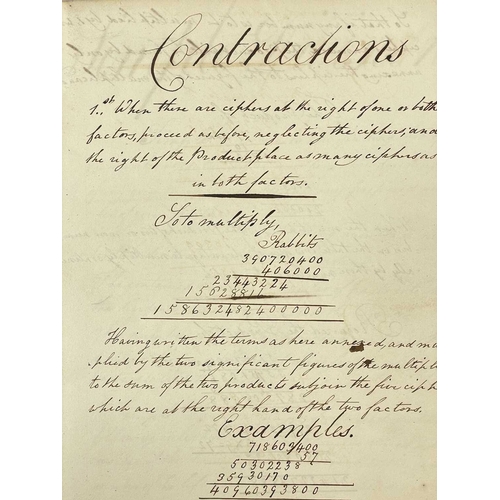 Contractions
1.st When there are ciphers at the right of one or both
factors, proceed as before, neglecting the ciphers, and
the right of the Product place as many ciphers as
in both factors.
So to multiply,
Rabbits
390720400
406000
23443224
15628816
158632482400000
Having written the terms as here annexed, and mu
plied by the two significant figures of the multipl
to the sum of the two products subjoin the five ciph
which are at the right hand of the two factors.
Examples.
718603400
57
50302238
35930170
40960393800